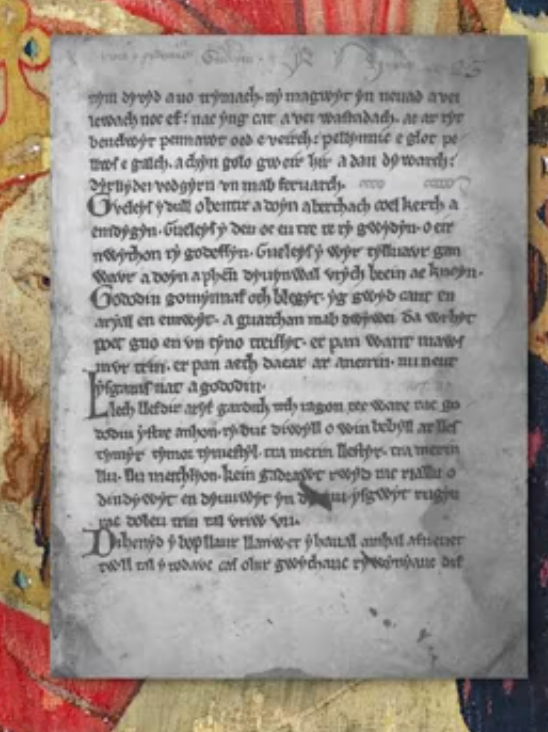 tym dyvyd a uo trymach. ny magwyt yn neuad a vei
lewach noc ef: nac yng cat a vei wastadach. ac ar ryt
benclwyt pennawt oed e veirch: pellynnic e glot pe
llws e galch. a chyn golo gweir hir a dan dywarch:
dyrllydei vedgyrn vn mab feruarch.
Gveleys y dull o bentir a doyn aberthach coel kerth a
emdygyn. Gueleys y deu oc eu tre re ry gwydyn. o eir
nwython ry godessyn. Gueleys y wyr tylluavr gan
wavr a doyn a phen dyuynwal vrych brein ae knoyn.
Gododin gomynnaf oth blegyt. yg gwyd cant en
aryal en emwyt. a guarchan mab dwywei da wrhyt
poet gno en vn tyno treissyt. er pan want maws
mvr trin. er pan aeth daear ar aneirin. mi neut
ysgaraf nat a gododin.
Llech llefdir aryf gardith tith ragon tec ware rac go
dodin ystre anhon. ry duc diwyll o win bebyll ar llef
tymyr tymor tymestyl. tra merin llestyr. tra merin
llu. llu meithlyon. kein gadrawt rwyd rac riallu o
dindywyt en dyuuwyt yn ysgwyt rugyn
rac doleu trin tal vriw vu.
Dihenyd y bop llaur llanwet y haual amhal afneuet
twll tal y rodavc cas ohir gwychauc rywynyauc dif